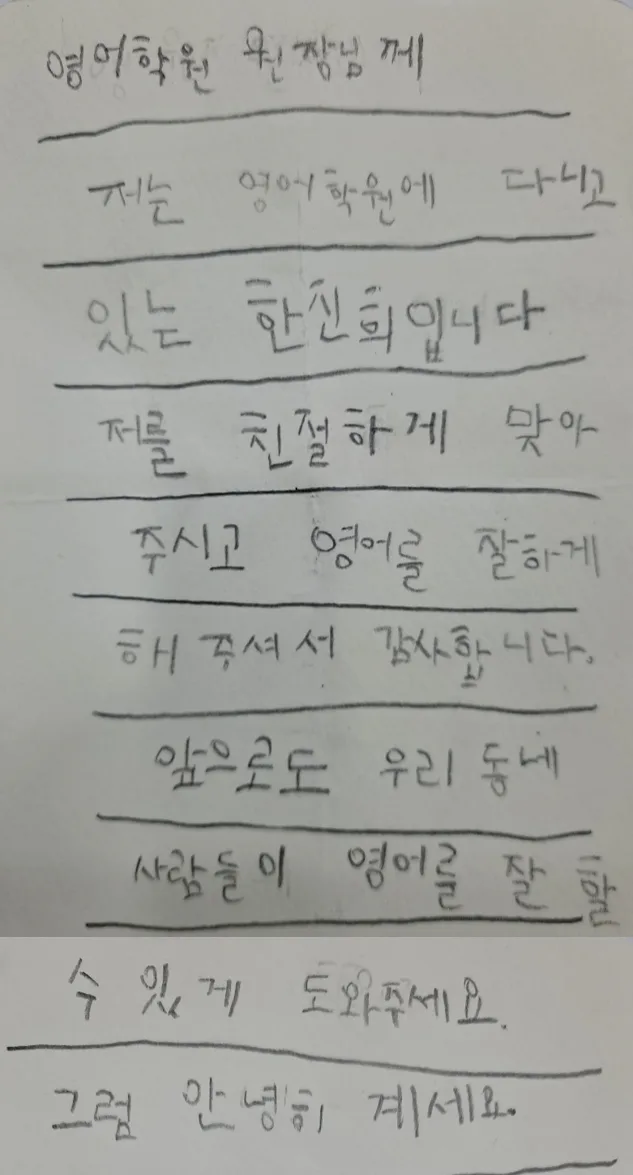 영어학원 원장님께
저는 영어학원에 다니고
있는 한진희입니다
저를 친절하게 맞아
주시고 영어를 잘하게
해 주셔서 감사합니다.
앞으로도 우리 동네
사람들이 영어를 잘 할
수 있게 도와주세요.
그럼 안녕히 계세요.